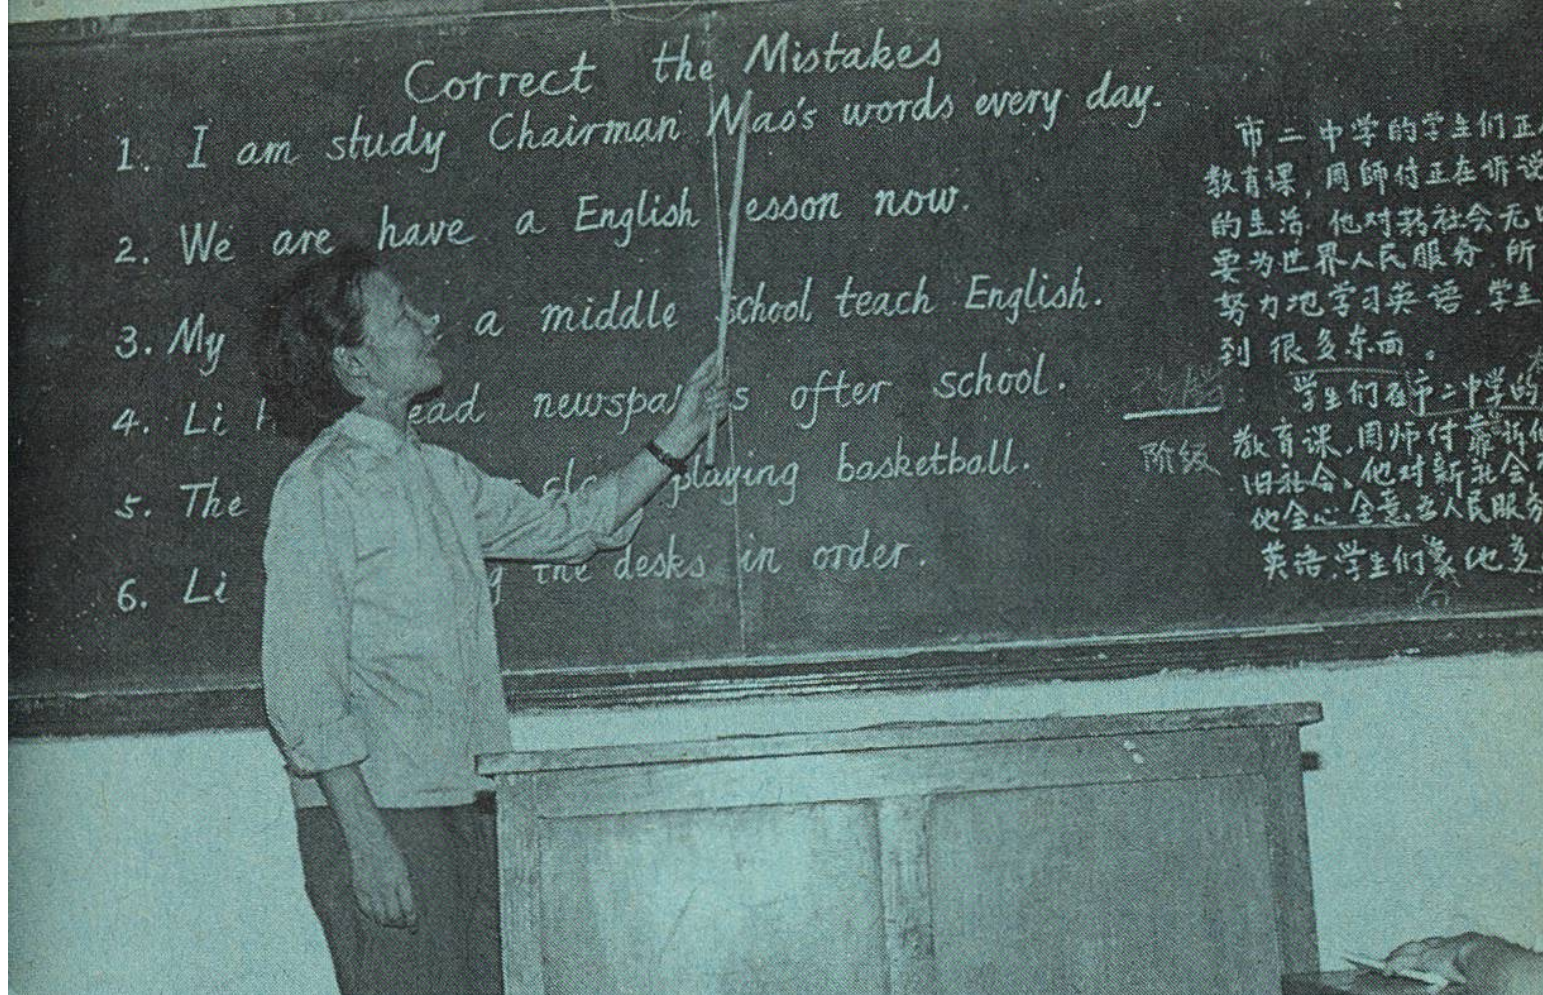 Correct the Mistakes
1. I am study Chairman Mao's words every day.
2. We are have a English esson now.
3. My a middle school teach English.
4. Li ead newspa s ofter school.
5. The playing basketball.
6. Li the desks in order.
市二中学的学生们正
教育课,周師付正在诉说
的生活.他对新社会无
要为世界人民服务 所
努力地学习英语.学生
到很多东西。
学生们在市二中学的
阶级
教育课,周师付靠诉
旧社会、他对新社会
他全心全意为人民服务
英语.学生们象他
向